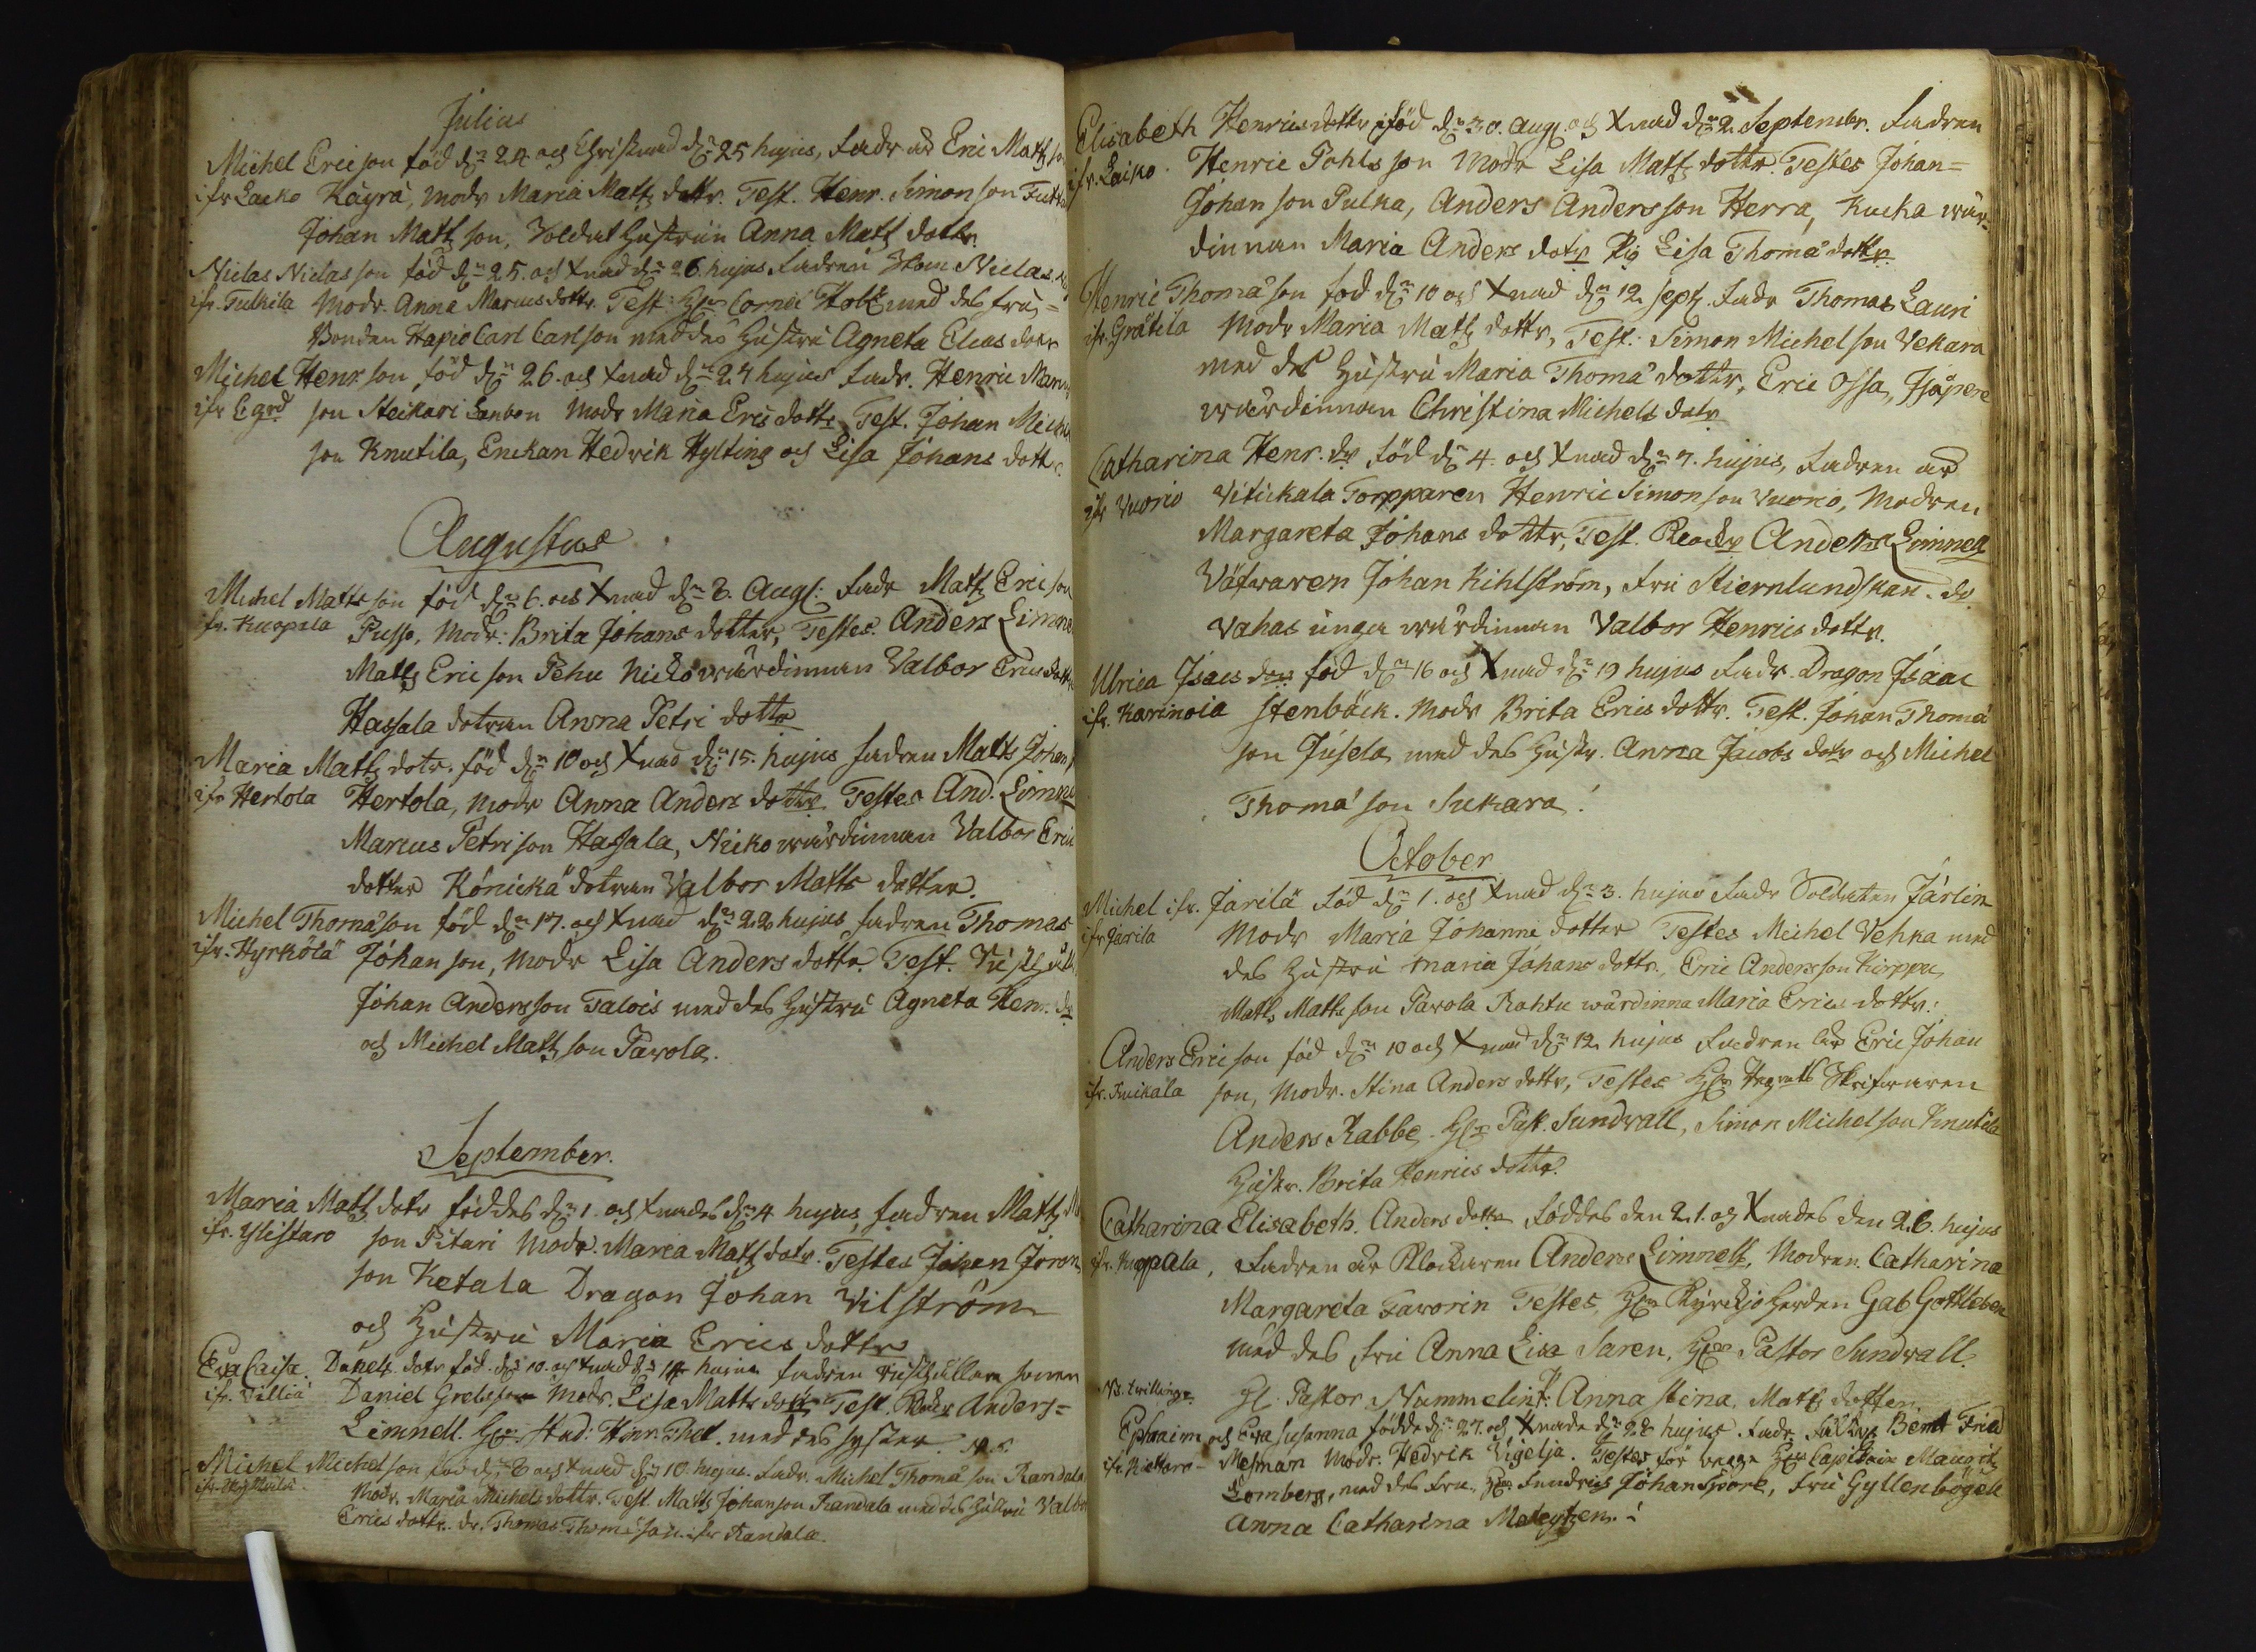 Julius
Michel Ericson föd dn 24 och Christnad dn 25 hujus, Fadr är Eric Matsson
ifr Laiko Käyrä, Modr Maria Matz dottr. Test. Henr. Simonson
Johan Matz son, Soldat Hustrun Anna Matz dottr
Niclas Niclasson föd dn 25. och Xnad dn 26. hujus Fadren Niclas
ifr. Tulkila Modr. Anna Marcus dottr. Test: Hr Cornet med des fru
Bonden Hapio Carl Carlson med des Hustru Agneta Elias dotr
Michel Henr. son föd dn 26. och Xnad dn 27 hujus Fadr. Henric
ifr son Steikari Modr Maria Erics dottr Test. Johan Michel
son Knutila, Enckan Hedvik Hylting och Lisa Johans dottr.
Augustus
Michel Matts son föd dn 6. och Xnad dn 8. Aug: Fadr Matz Ericson
ifr. Kuopala Pusso, Modr: Brita Johans dotter, Testes. Anders Limnell
Matts Ericson Pehu Nicko wärdinnan Valbor Erics dottr
Hassala dotran Anna Petri dottr
Maria Matz dotr. föd dn 10 och Xnad dn 15. hujus Fadren Matts Johan
ifr Hertola Hertola, Modr Anna Anders dottr. Testes And. Limnell
Marcus Petrison Hassala, Nicko wärdinnan Valbor Erics
dotter Könickä dotran Valbor Matts dotter.
Michel Thomæson föd dn 17. och Xnad dn 22 hujus Fadren Thomas
ifr. Hyrkölä Johan son, Modr Lisa Anders dottr. Test.
Johan Andersson Talois med des Hustru Agneta Henr. dr
och Michel Matz son Parola.
September.
Maria Matz dotr föddes dn 1. och Xnades dn 4 hujus, Fadren Matz
ifr. Ylistaro son Pitari Modr. Maria Matz dotr. Testes Johan
son Ketala Dragon Johan Vilström
och Hustru Maria Erics dottr
Eva Caisa Daniels dotr föd dn 10. och Xnad dn 14 hujus Fadren
ifr. Villiä Daniel Grelsson Modr. Lisa Matts dottr Test. Klockr Anders
Limnell. Hr Stud: Hinr. med des syster
Michel Michelson föd dn 8 och Xnad dn 10. hujus. Fadr. Michel Thomæson Randala
Modr. Maria Michels dottr. Test. Matts Johanson Randala med des Hustru Valbor
Erics dottr. dr. Thomas Thomæson ifr Randala.
Elisabeth Henricsdottr föd dn 30. Aug. och Xnad dn 2. Septembr. Fadren
ifr. Laiko. Henric Pohls son Modr Lisa Matz dottr. Testes Johan
Johan son Pulka, Anders Andersson Herra, Kucka wär-
dinnan Maria Anders dotr Pig Lisa Thomæ dottr
Henric Thomæson föd dn 10 och Xnad dn 12 sept. Fadr Thomas Lauri
ifr. Grätila Modr Maria Matz dottr, Test: Simon Michelson Vekara
med des Hustru Maria Thomæ dottr, Eric Ossa,
wärdinnan Christina Michels dotr
Catharina Henr. dr föd dn 4. och Xnad dn 7. hujus, Fadren är
ifr Vuorio Vitickala Torpparen Henric Simonson Vuorio, Modren
Margareta Johans dottr, Test. Klockr Anders Limnell
Väfwaren Johan Kihlström, Fru Stiernlundskan
Vahas unga wärdinnan Valbor Henrics dottr.
Ulrica Isacs dotr föd dn 16 och Xnad dn 19 hujus Fadr. Dragon Isaac
ifr. Karinoia Stenbäck. Modr Brita Erics dottr. Test. Johan Thomæ
son Jusela med des Hustr. Anna Jacobs dotr och Michel
Thomæ son Sukara.
October
Michel ifr. Jarilä föd dn 1. och Xnad dn 3. hujus Fadr Soldaten Järlin
ifr Jarila Modr Maria Johanni dotter Testes Michel Vehka med
des Hustru Maria Johans dottr, Eric Andersson Kirppu
Matts Mattsson Parola Rahtu wärdinna Maria Erics dottr.
Anders Ericson föd dn 10 och Xnad dn 12 hujus Fadren är Eric Johan
ifr. Kuikala son, Modr. Stina Anders dottr, Testes Hr Skrifwaren
Anders Rabbe. Hr Past. Sundvall, Simon Michelson Knutila
Hustr. Brita Henrics dottr.
Catharina Elisabeth. Anders dottr Föddes den 21. och Xnades den 26. hujus
ifr. Kuopala, Fadren är Klockaren Anders Limnell, Modren Catharina
Margareta Favorin Testes, Hr Kyrckjo Herden Gab Gottleben
med des Fru Anna Lisa Saren, Hr Pastor Sundwall.
NB. twillingar H. Pastor Nummelin: Anna Stina. Matz dotter.
Ephraim och Eva Susanna födde dn 27. och Xnade dn 28 hujus. Fadr Bernt Fried
Mesman Modr. Hedvik Vigelja. Testes för begge Hr Capitain Maugitz
Lomberg, med des Fru, Hr Fendrics Johan Spåre, Fru Gyllenbögell
Anna Catharina